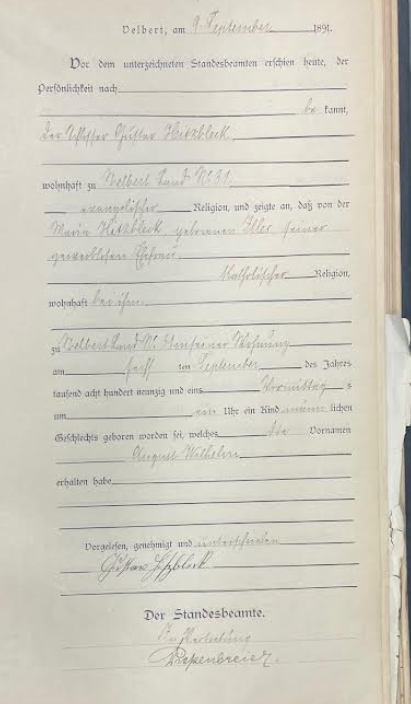 Velbert, am 9. September 1891.
Vor dem unterzeichneten Standesbeamten erschien heute, der
Persönlichkeit nach
be kannt,
der Schlosser Gustav Hitzbleck
wohnhaft zu Velbert Land No 31,
evangelischer Religion, und zeigte an, daß von der
Maria Hitzbleck geborenen Iller seiner
gewerblosen Ehefrau
katholischer Religion,
wohnhaft bei ihm
zu Velbert Land in seiner Wohnung
am September des Jahres
tausend acht hundert neunzig und eins Vormittag s
um ein Uhr ein Kind männ lichen
Geschlechts geboren worden sei, welches die Vornamen
August Wilhelm
erhalten habe
Vorgelesen, genehmigt und unterschrieben
Gustav Hitzbleck
Der Standesbeamte.
In Vertretung